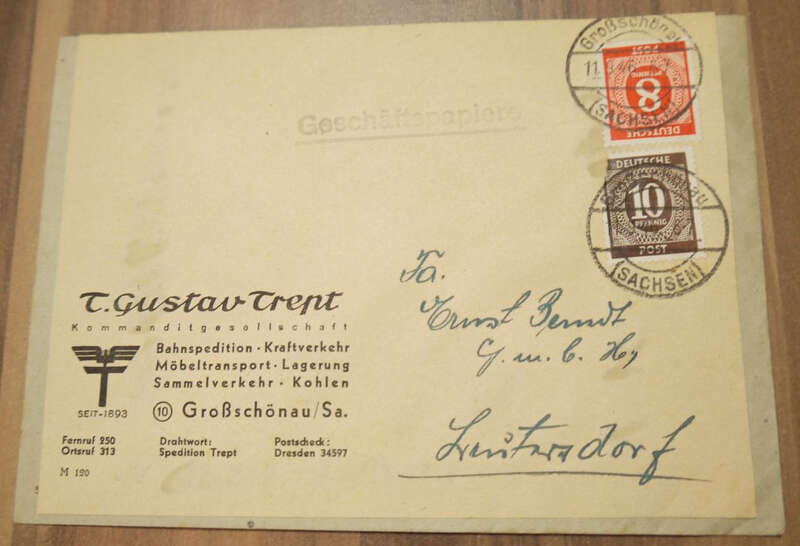 Geschäftspapiere
Großschönau
11
46
(SACHSEN)
DEUTSCHE
8
PFENNIG
POST
DEUTSCHE
10
PFENNIG
POST
(SACHSEN)
T. Gustav Trept
Kommanditgesellschaft
Bahnspedition · Kraftverkehr
Möbeltransport · Lagerung
Sammelverkehr · Kohlen
SEIT-1893
(10) Großschönau/Sa.
Fernruf 250
Ortsruf 313
Drahtwort:
Spedition Trept
Postscheck:
Dresden 34597
M 120
Fa.
Ernst Berndt
G.m.b.H
Leutersdorf